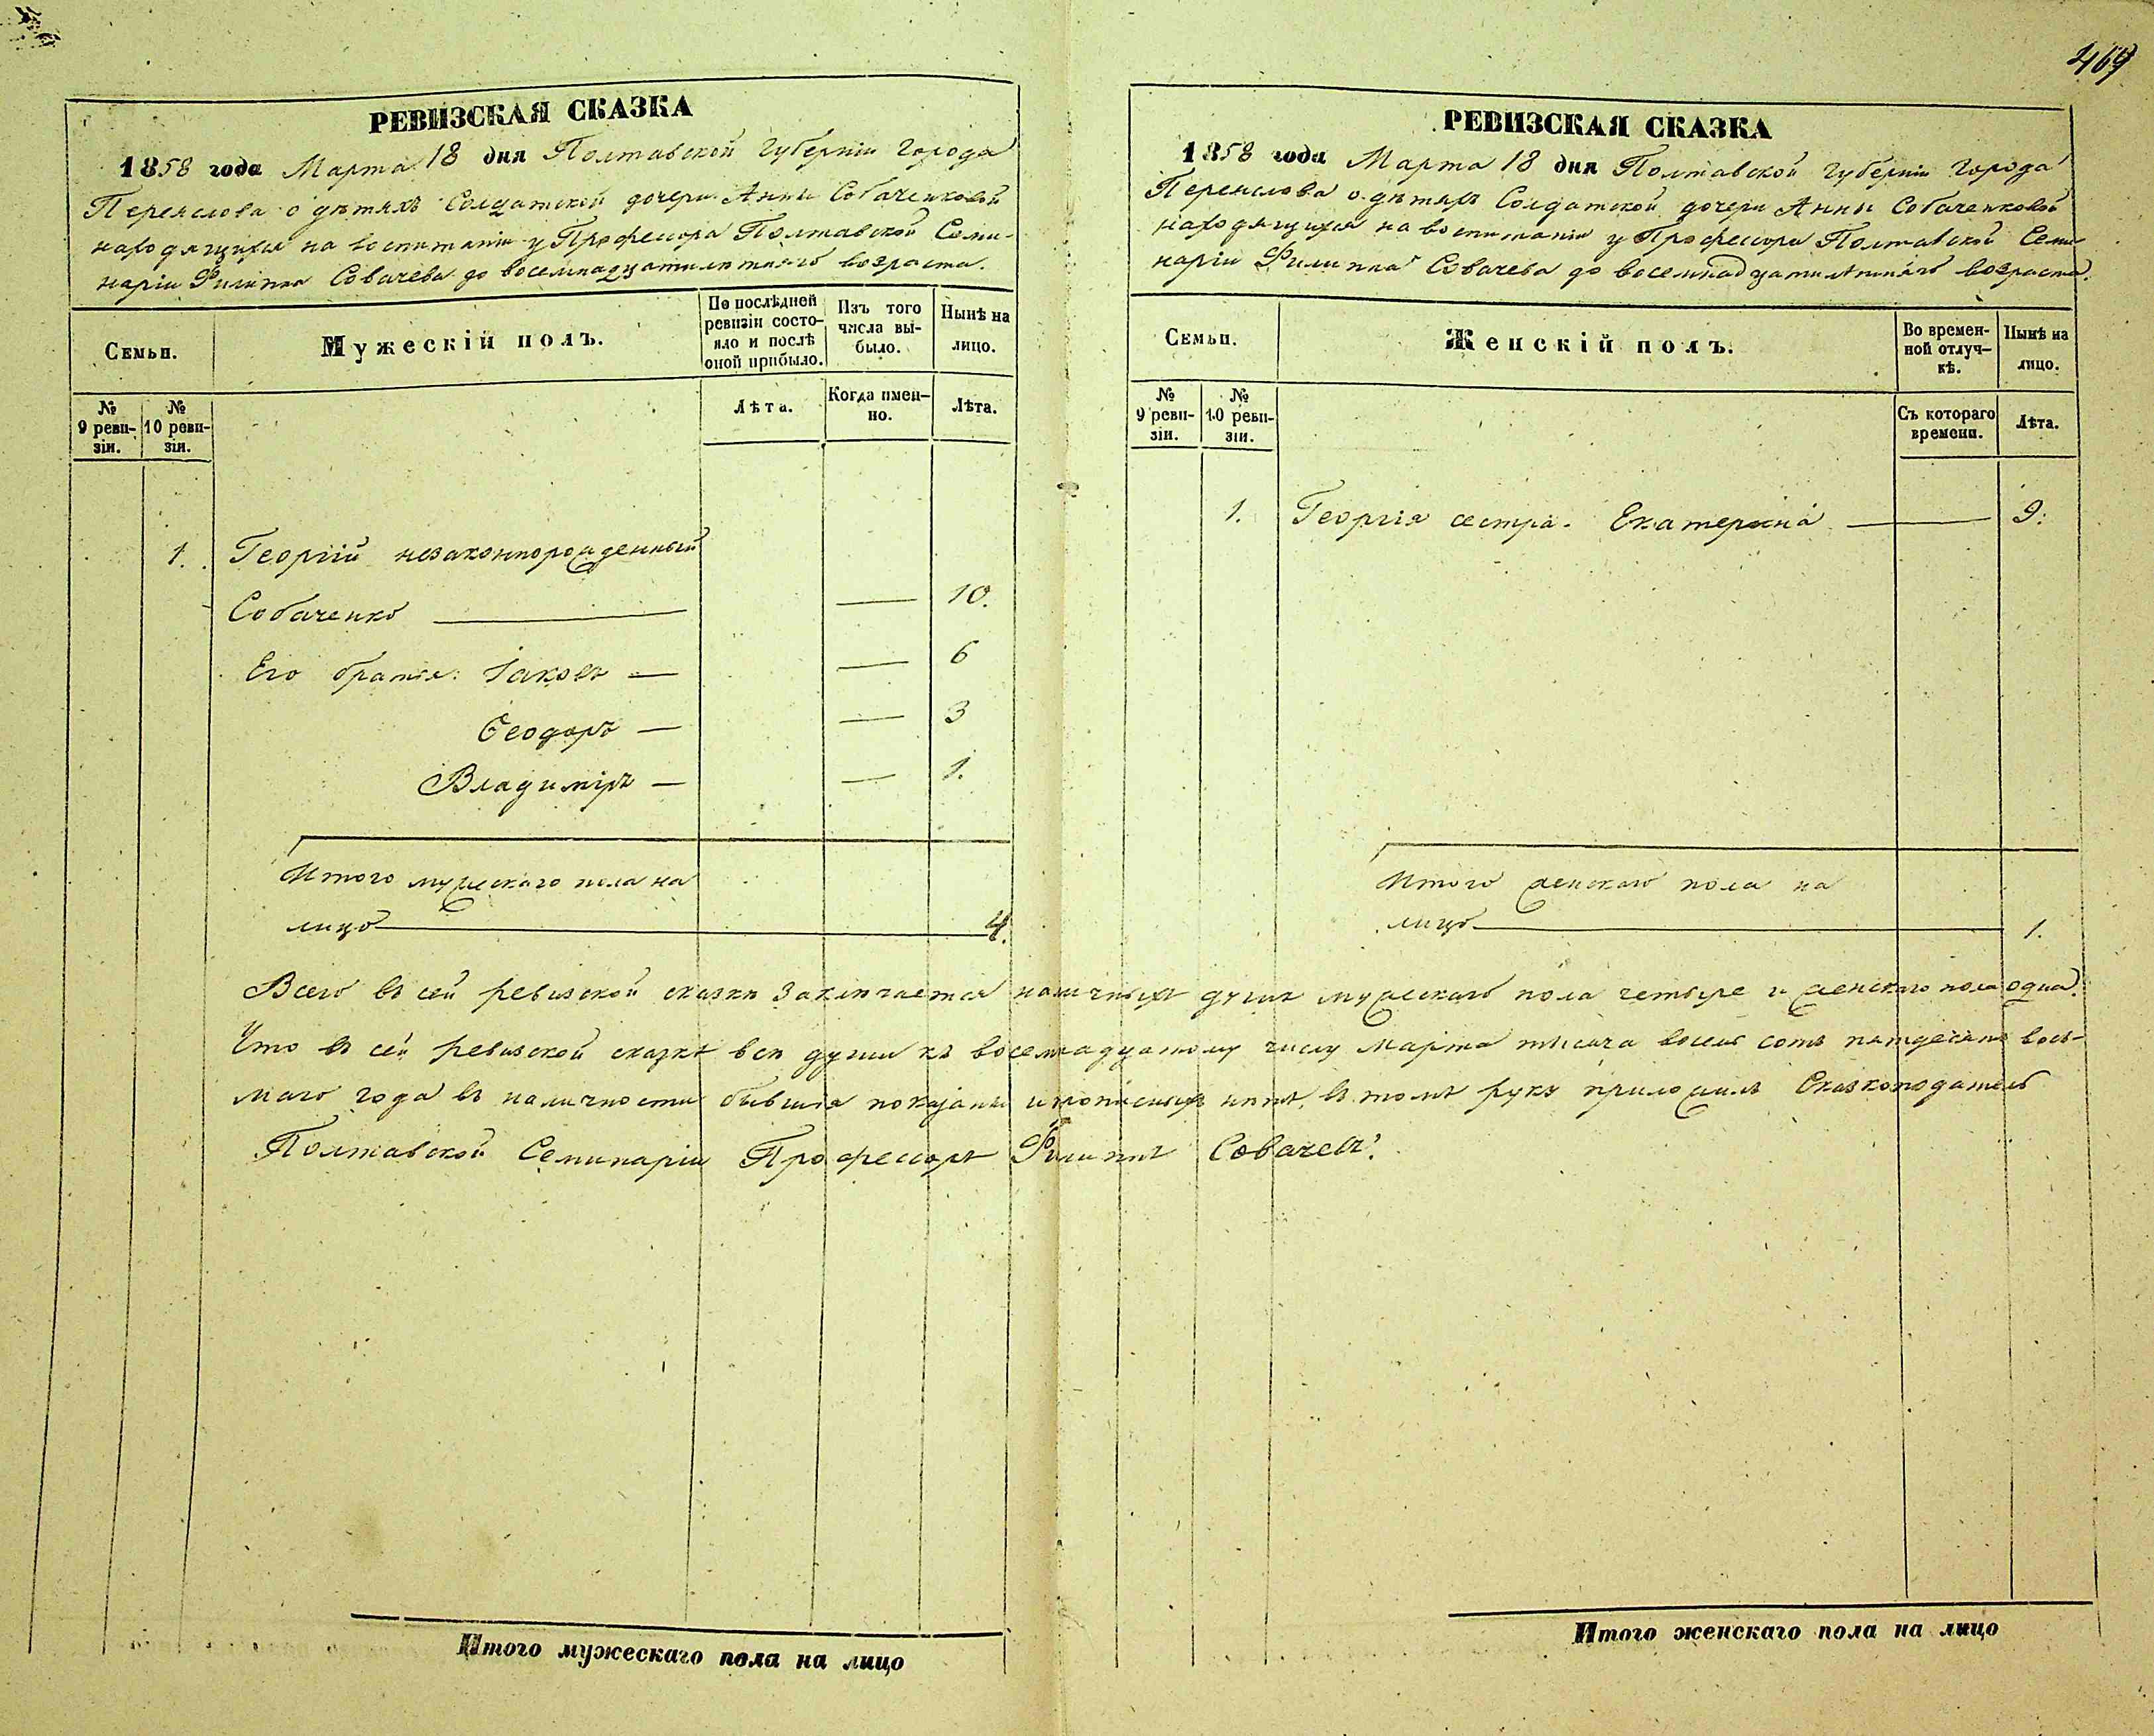 469
РЕВИЗСКАЯ СКАЗКА
1858 года Марта 18 дня Полтавской Губерніи Города
Переяслова о дѣтяхъ Солдатской дочери Анны Собаченковой
находящихся на воспитаніи у Профессора Полтавской Семи-
наріи Филиппа Совачева до восемнадцатилѣтняго возраста.
Семьи.
Мужескій полъ.
По послѣдней ревизіи состо-
яло и послѣ
оной прибыло.
Изъ того
числа вы-
было.
Нынѣ на
лицо.
№
9 реви-
зіи.
№
10 реви-
зіи.
Лѣта.
Когда имен-
но.
Лѣта.
1. Георгій незаконнорожденный
Собаченко — — 10.
Его братья: Іаковъ — — 6
Ѳеодоръ — — 3
Владиміръ — — 1.
Итого мужескаго пола на
лицо 4.
РЕВИЗСКАЯ СКАЗКА
1858 года Марта 18 дня Полтавской Губерніи Города
Переяслова о дѣтяхъ Солдатской дочери Анны Собаченковой
находящихся на воспитаніи у Профессора Полтавской Семи
наріи Филиппа Совачева до восемнадцатилѣтняго возраста.
Семьи.
Женскій полъ.
Во времен-
ной отлуч-
кѣ.
Нынѣ на
лицо.
№
9 реви-
зіи.
№
10 реви-
зіи.
Съ котораго
времени.
Лѣта.
1. Георгія сестра. Екатерина — 9.
Итого женскаго пола на
лицо 1.
Всего въ сей ревизской сказкѣ заключается наличныхъ душъ мужескаго пола четыре и женскаго пола одна.
Что въ сей ревизской сказкѣ всѣ души къ восемнадцатому числу Марта тысяча восемь сотъ пятдесятъ вось-
маго года въ наличности бывшія показаны и прописныхъ нѣтъ, въ томъ руку приложилъ Сказкоподатель
Полтавской Семинаріи Профессоръ Филиппъ Совачевъ.
Итого мужескаго пола на лицо
Итого женскаго пола на лицо